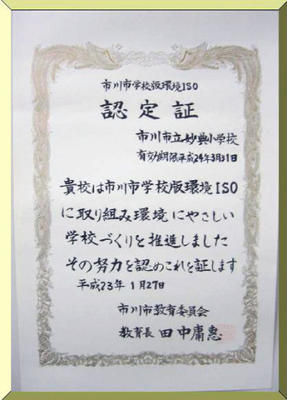 市川市学校版環境ISO
認定証
市川市立妙典小学校
有効期限平成24年3月31日
貴校は市川市学校版環境ISO
に取り組み環境にやさしい
学校づくりを推進しました
その努力を認めこれを証します
平成23年1月27日
市川市教育委員会
教育長 田中庸惠